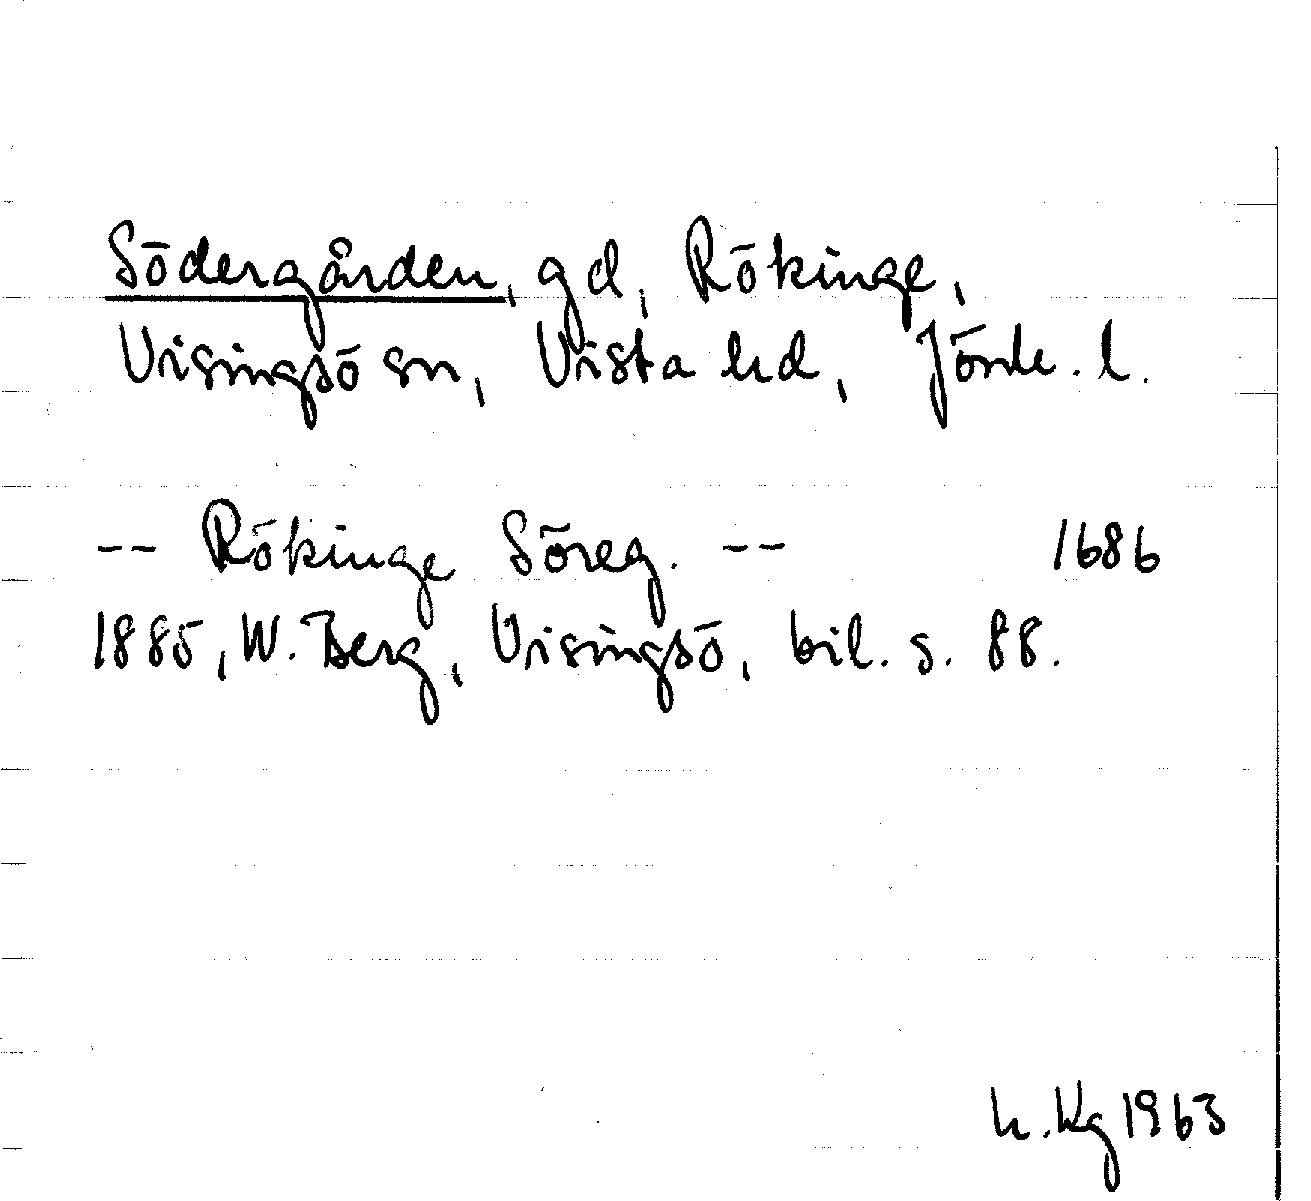 Södergården, gd, Rökinge,
Visingsö sn, Vista hd, Jönk. l.
-- Rökinge Söreg. -- 1686
1885, W. Berg, Visingsö, bil. s. 88.
h. Kg 1963